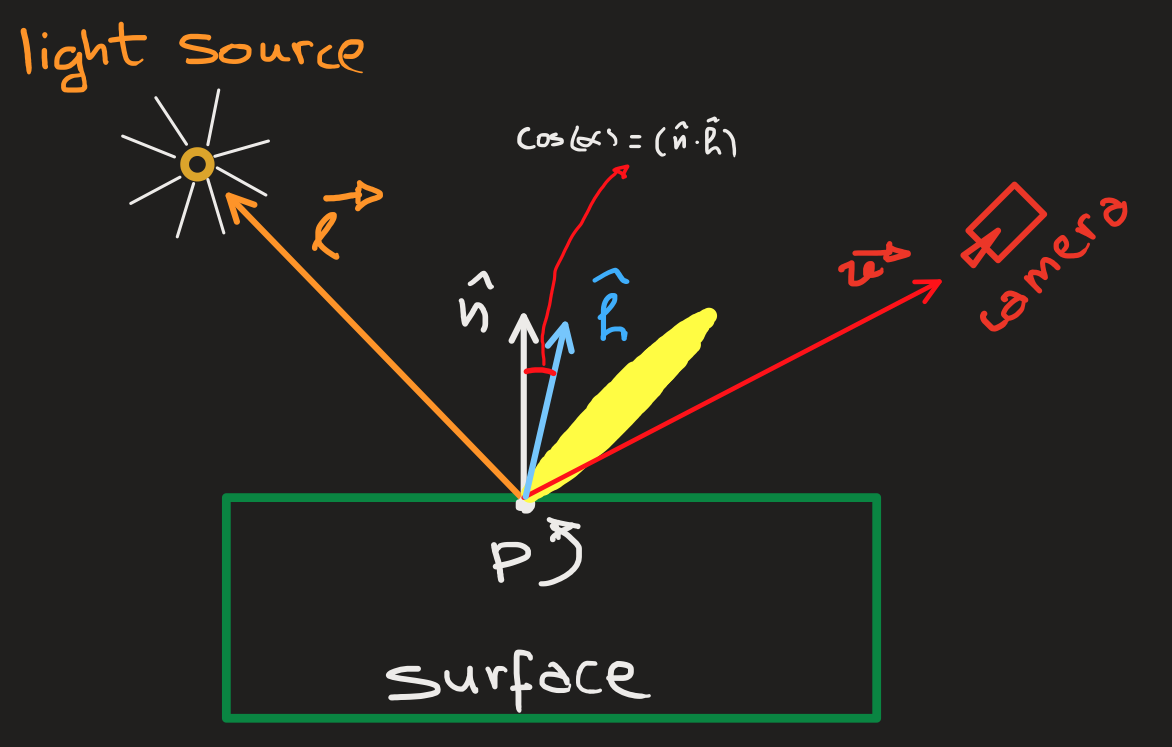 light source
cos(α) = (n̂·ĥ)
camera
n̂
ĥ
P
surface